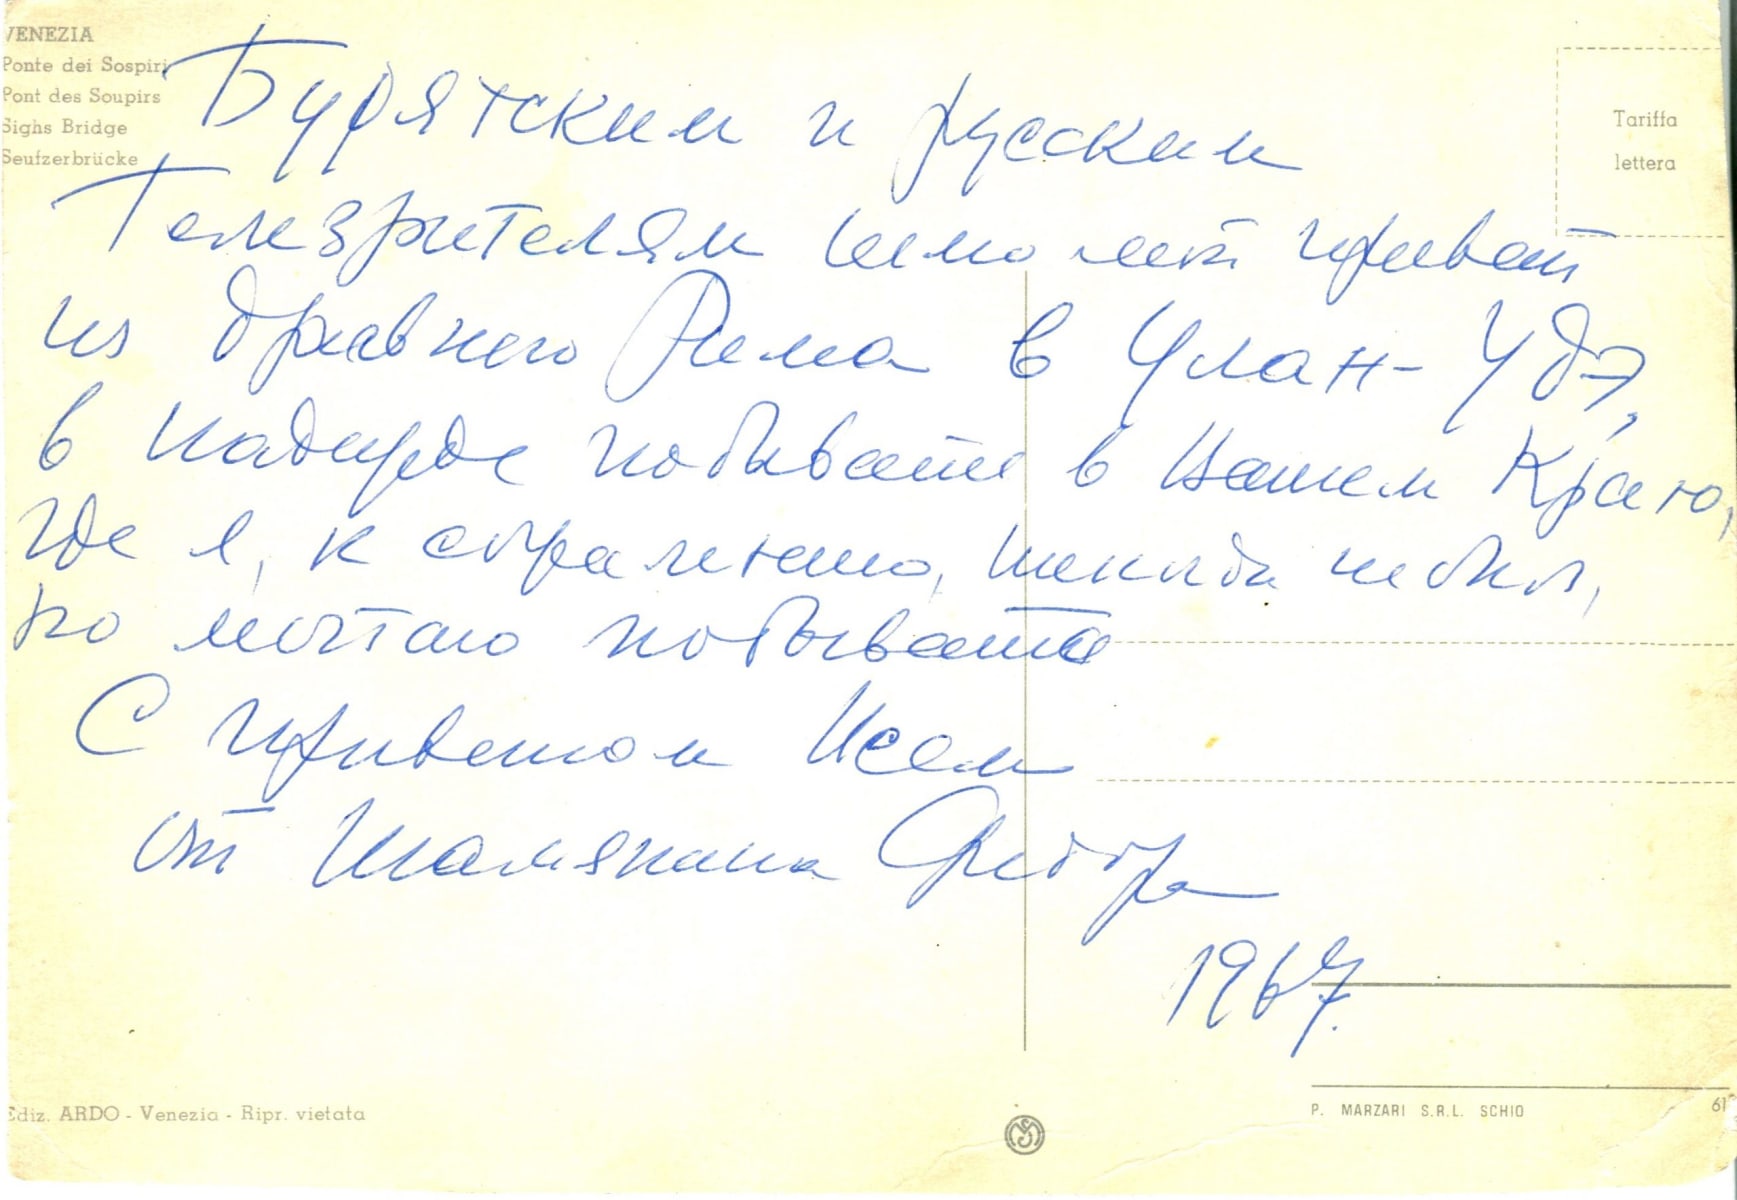 VENEZIA
Ponte dei Sospiri
Pont des Soupirs
Sighs Bridge
Seufzerbrücke
Tariffa
lettera
Бурятским и русским
Телезрителям шлю мой привет
из древнего Рима в Улан-Удэ,
в надежде побывать в Вашем Краю,
где я, к сожалению, никогда не был,
но мечтаю побывать
С приветом Всем
от Шаляпина Федора
1967.
Ediz. ARDO - Venezia - Ripr. vietata
P. MARZARI S.R.L. SCHIO
61